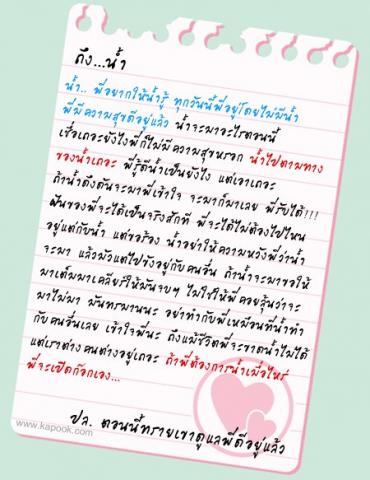 ถึง...น้ำ
น้ำ.. พี่อยากให้น้ำรู้ ทุกวันนี้พี่อยู่โดยไม่มีน้ำ
พี่มีความสุขดีอยู่แล้ว น้ำจะมาอะไรตอนนี้
เชื่อเถอะยังไงพี่ก็ไม่มีความสุขหรอก น้ำไปตามทาง
ของน้ำเถอะ พี่รู้ดีน้ำเป็นยังไง แต่เอาเถอะ
ถ้าน้ำดึงดันจะมาพี่เข้าใจ จะมาก็มาเลย พี่รับได้!!!
ฝันของพี่จะได้เป็นจริงสักที พี่จะได้ไม่ต้องไปไหน
อยู่แต่กับน้ำ แต่ขอร้อง น้ำอย่าให้ความหวังพี่ว่าน้ำ
จะมา แล้วมัวแต่ไปขังอยู่กับคนอื่น ถ้าน้ำจะมาขอให้
มาเต็มมาเคลียร์ให้มันจบๆ ไม่ใช่ให้พี่คอยลุ้นว่าจะ
มาไม่มา มันทรมานนะ อย่าทำกับพี่เหมือนที่น้ำทำ
กับคนอื่นเลย เข้าใจพี่นะ ถึงแม้ชีวิตพี่จะขาดน้ำไม่ได้
แต่เราต่างคนต่างอยู่เถอะ ถ้าพี่ต้องการน้ำเมื่อไหร่
พี่จะเปิดก๊อกเอง...
ปล. ตอนนี้ทรายเขาดูแลพี่ดีอยู่แล้ว
www.kapook.com